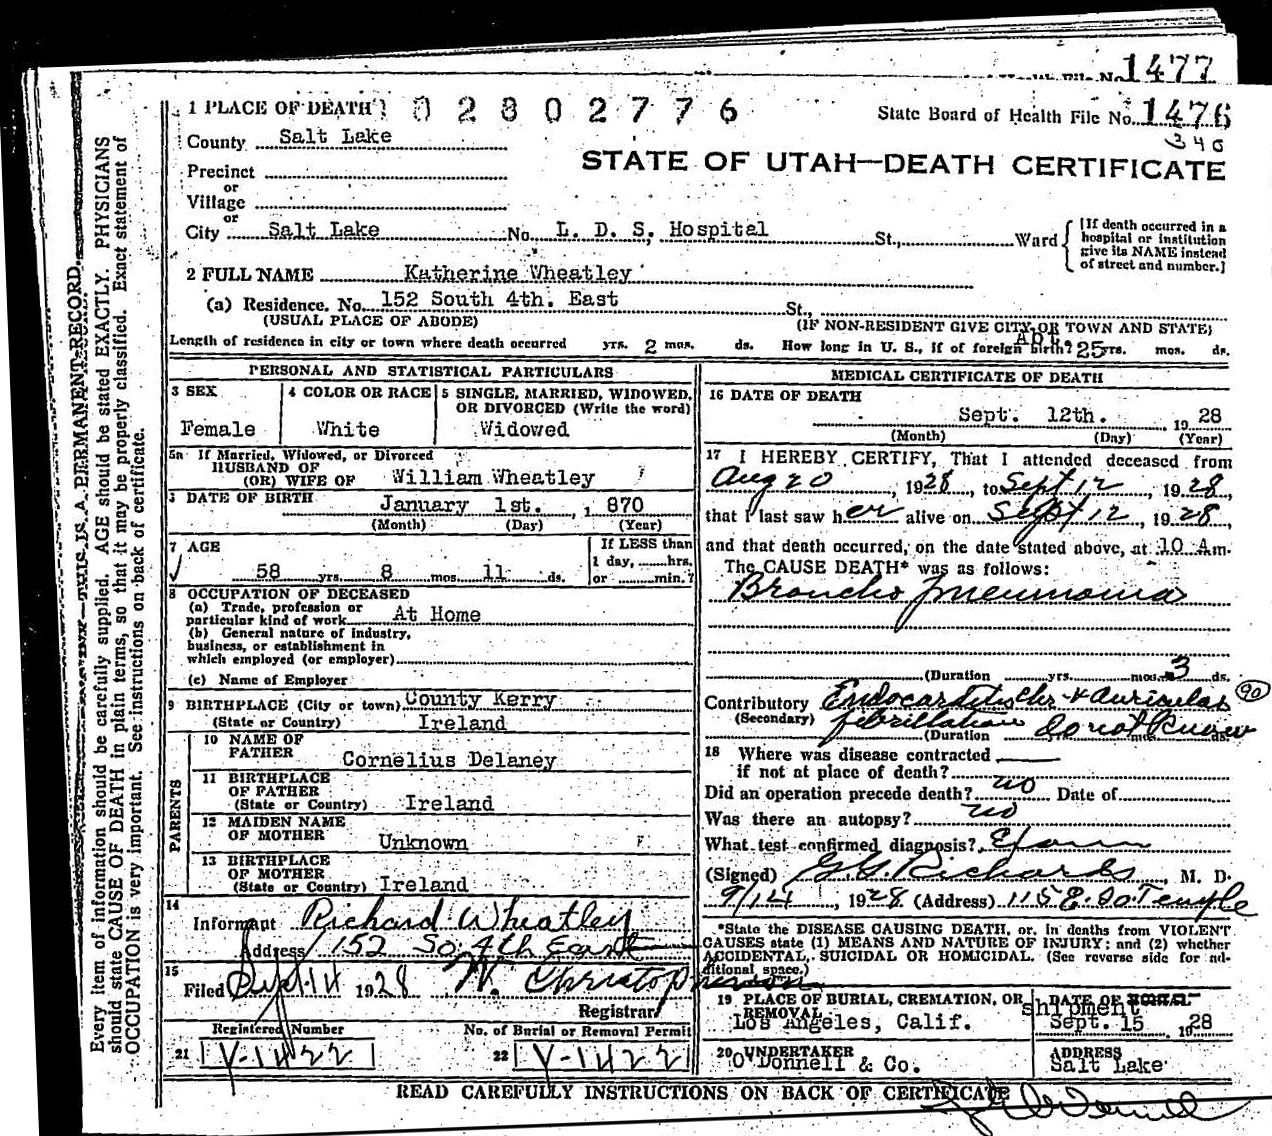 1477
1 PLACE OF DEATH 02802776
State Board of Health File No. 1476
340
County Salt Lake
STATE OF UTAH—DEATH CERTIFICATE
Precinct
or
Village
or
City Salt Lake No. L. D. S. Hospital St., Ward
[If death occurred in a hospital or institution give its NAME instead of street and number.]
2 FULL NAME Katherine Wheatley
(a) Residence. No. 152 South 4th. East St.,
(USUAL PLACE OF ABODE) (IF NON-RESIDENT GIVE CITY OR TOWN AND STATE)
Length of residence in city or town where death occurred yrs. 2 mos. ds. How long in U. S., if of foreign birth? Abt. 25 yrs. mos. ds.
PERSONAL AND STATISTICAL PARTICULARS
3 SEX 4 COLOR OR RACE 5 SINGLE, MARRIED, WIDOWED, OR DIVORCED (Write the word)
Female White Widowed
5a If Married, Widowed, or Divorced
HUSBAND OF
(OR) WIFE OF William Wheatley
DATE OF BIRTH January 1st., 1870
(Month) (Day) (Year)
7 AGE If LESS than
58 yrs. 8 mos. 11 ds. 1 day, hrs.
or min.?
8 OCCUPATION OF DECEASED
(a) Trade, profession or
particular kind of work At Home
(b) General nature of industry,
business, or establishment in
which employed (or employer)
(c) Name of Employer
9 BIRTHPLACE (City or town) County Kerry
(State or Country) Ireland
PARENTS
10 NAME OF
FATHER Cornelius Delaney
11 BIRTHPLACE
OF FATHER
(State or Country) Ireland
12 MAIDEN NAME
OF MOTHER Unknown
13 BIRTHPLACE
OF MOTHER
(State or Country) Ireland
14
Informant Richard Wheatley
Address 152 So 4th East
15
Filed Sept. 14 1928 W. Christopherson
Registrar
Registered Number No. of Burial or Removal Permit
21 V-1422 22 V-1422
MEDICAL CERTIFICATE OF DEATH
16 DATE OF DEATH
Sept. 12th. 1928
(Month) (Day) (Year)
17 I HEREBY CERTIFY, That I attended deceased from
Aug 20, 1928, to Sept 12, 1928,
that I last saw her alive on Sept 12, 1928
and that death occurred, on the date stated above, at 10 Am.
The CAUSE DEATH* was as follows:
Broncho pneumonia
(Duration yrs. mos. 3 ds.
Contributory Endocarditis Chr & Auricular 90
(Secondary) fibrillation
(Duration do not know ds.
18 Where was disease contracted
if not at place of death?
Did an operation precede death? no Date of
Was there an autopsy? no
What test confirmed diagnosis? Exam
(Signed) G. G. Richards, M. D.
9/14, 1928 (Address) 115 E. So Temple
*State the DISEASE CAUSING DEATH, or, in deaths from VIOLENT
CAUSES state (1) MEANS AND NATURE OF INJURY; and (2) whether
ACCIDENTAL, SUICIDAL OR HOMICIDAL. (See reverse side for ad-
ditional space.)
19 PLACE OF BURIAL, CREMATION, OR REMOVAL DATE OF shipment
Los Angeles, Calif. Sept. 15 1928
20 UNDERTAKER ADDRESS
O'Donnell & Co. Salt Lake
READ CAREFULLY INSTRUCTIONS ON BACK OF CERTIFICATE
Every item of information should be carefully supplied. AGE should be stated EXACTLY. PHYSICIANS
should state CAUSE OF DEATH in plain terms, so that it may be properly classified. Exact statement of
OCCUPATION is very important. See instructions on back of certificate.
THIS IS A PERMANENT RECORD.